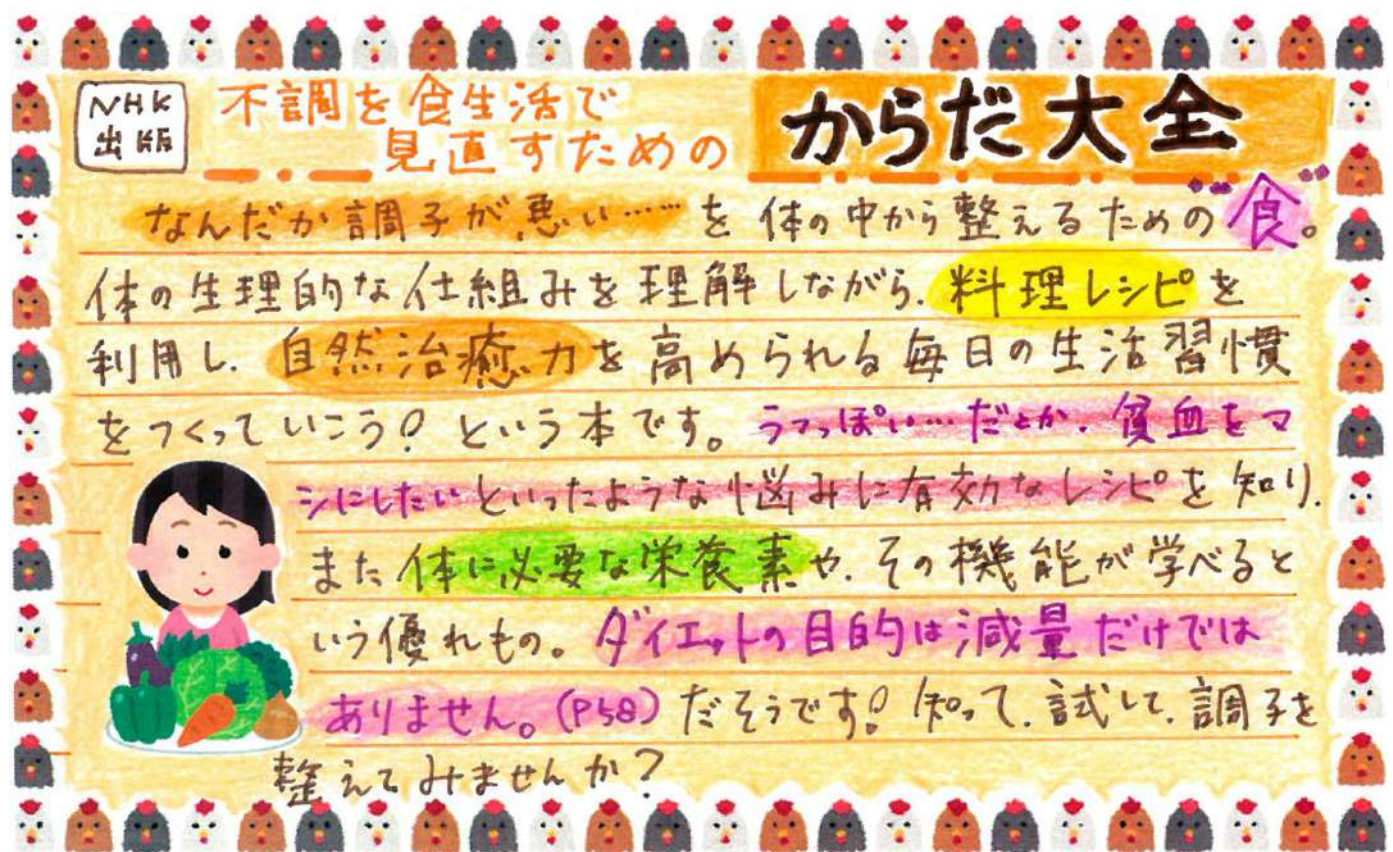 NHK
出版
不調を食生活で
見直すための
からだ大全
なんだか調子が悪い……を体の中から整えるための食。
体の生理的な仕組みを理解しながら、料理レシピを
利用し、自然治癒力を高められる毎日の生活習慣
をつくっていこう!という本です。うつっぽい…だとか、貧血をマ
シにしたいといったような悩みに有効なレシピを知り、
また体に必要な栄養素や、その機能が学べると
いう優れもの。ダイエットの目的は減量だけでは
ありません。(P58)だそうです!知って、試して、調子を
整えてみませんか?